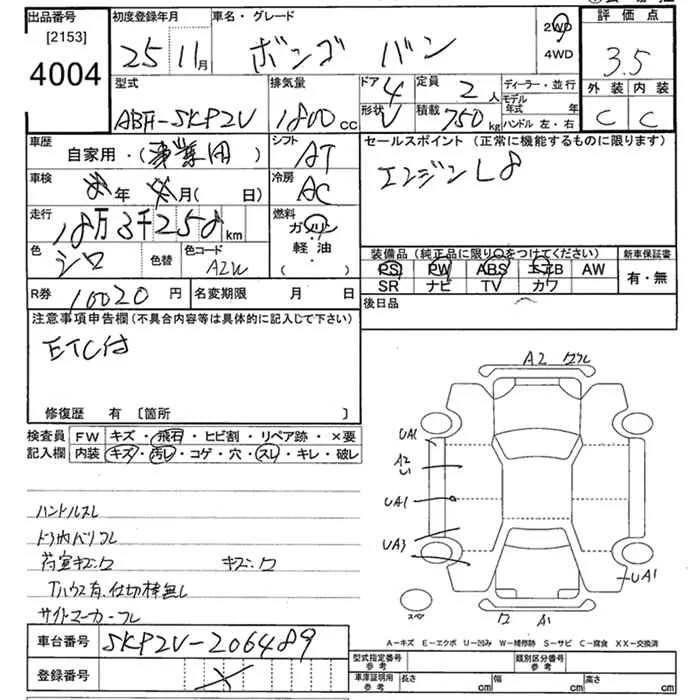 出品番号 初度登録年月 車名・グレード 評価点
[2153]
4004
25 11月 ボンゴ バン 2WD
4WD
3.5
型式 排気量 ドア 定員 ディーラー・並行 外装 内装
ABF-SKP2V 1800cc 4 2人 モデル年式 年
形状 V 積載 750kg ハンドル 左・右 C C
車歴 自家用・(事業用) シフト AT
セールスポイント (正常に機能するものに限ります)
エンジンL8
車検 年 月( 日) 冷房 AC
走行 18万3千258km 燃料 ガソリン
軽・油
( ・ )
色 シロ 色替 色コード A2W
装備品(純正品に限り○をつけてください) 新車保証書
PS PW ABS エアB AW
SR ナビ TV カワ
有・無
R券 10020円 名変期限 月 日
後日品
注意事項申告欄(不具合内容等は具体的に記入して下さい)
ETC付
修復歴 有 〔箇所 〕
検査員記入欄 FW キズ・飛石・ヒビ割・リペア跡・×要
内装 キズ・汚レ・コゲ・穴・スレ・キレ・破レ
ハンドルスレ
ドア内ハリワレ
荷室キズ凹 キズ凹
Tハウス有.仕切棒無し
サイドマーカーワレ
A2 ワレ
UA1
A2
UA1
UA3
UA1
スペア
A1
A-キズ E-エクボ U-凹み W-補修跡 S-サビ C-腐食 XX-交換済
車台番号 SKP2V-206489
登録番号
型式指定番号 参考 類別区分番号 参考
車庫証明用 参考 長さ cm 幅 cm 高さ cm